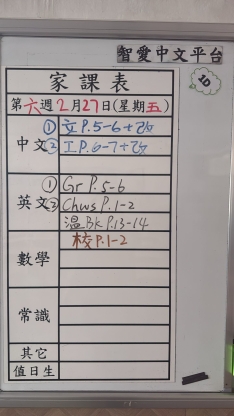 智愛中文平台
1D
家課表
第六週2月27日(星期五)
中文 ① 立P.5-6+改
② 工P.6-7+改
英文 ① Gr P.5-6
② Chws P.1-2
温Bk P.13-14
數學 校P.1-2
常識
其它
值日生